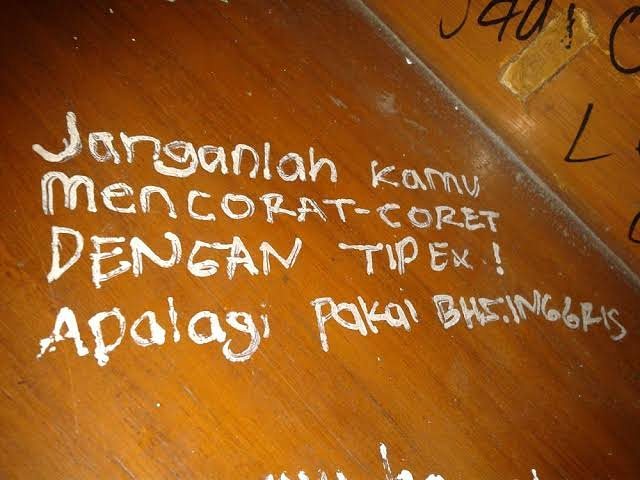 Janganlah kamu
MENCORAT-CORET
DENGAN TIPEX!
Apalagi pakai BHS.INGGRIS